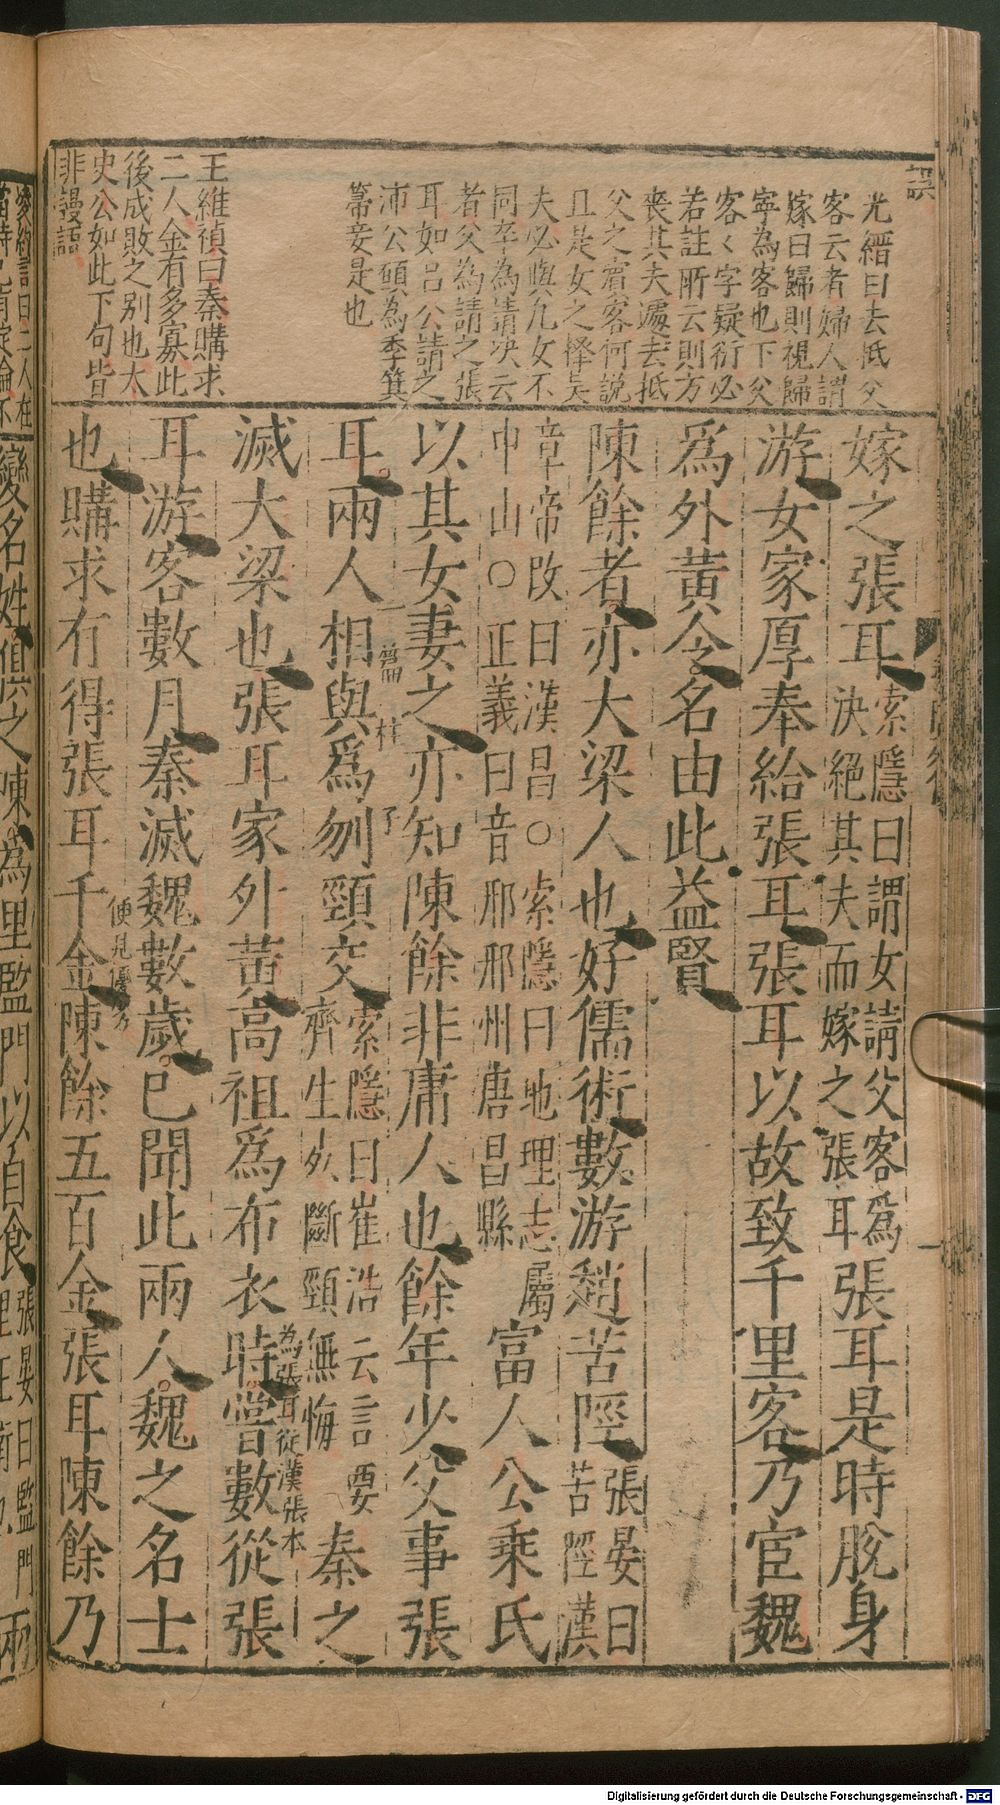 誤
光縉曰去抵父
客云者婦人謂
嫁曰歸則視歸
寧為客也下父
客々字疑衍必
若註所云則方
喪其夫遽去抵
父之賔客何説
且是女之擇吳
夫必與凢女不
同卒為請决云
者父為請之張
耳如呂公請之
沛公願為季箕
箒妾是也
王維禎曰秦購求
二人金有多寡此
後成敗之别也太
史公如此下句皆
非謾語
嫁之張耳索隱曰謂女請父客爲決絕其夫而嫁之張耳張耳是時脫身
游女家厚奉給張耳張耳以故致千里客乃宦魏
爲外黃令名由此益賢
陳餘者亦大梁人也好儒術數游趙苦陘張晏曰苦陘漢
章帝改曰漢昌○索隱曰地理志屬中山○正義曰音邢邢州唐昌縣富人公乘氏
以其女妻之亦知陳餘非庸人也餘年少父事張
耳兩人相與爲刎頸交索隱曰崔浩云言要齊生死斷頸無悔秦之
一篇柱子
滅大梁也張耳家外黃高祖爲布衣時嘗數從張
為張耳從漢張本
耳游客數月秦滅魏數歲已聞此兩人魏之名士
也購求有得張耳千金陳餘五百金張耳陳餘乃
便見優劣
變名姓俱之陳爲里監門以自食張晏曰監門
Digitalisierung gefördert durch die Deutsche Forschungsgemeinschaft - DFG